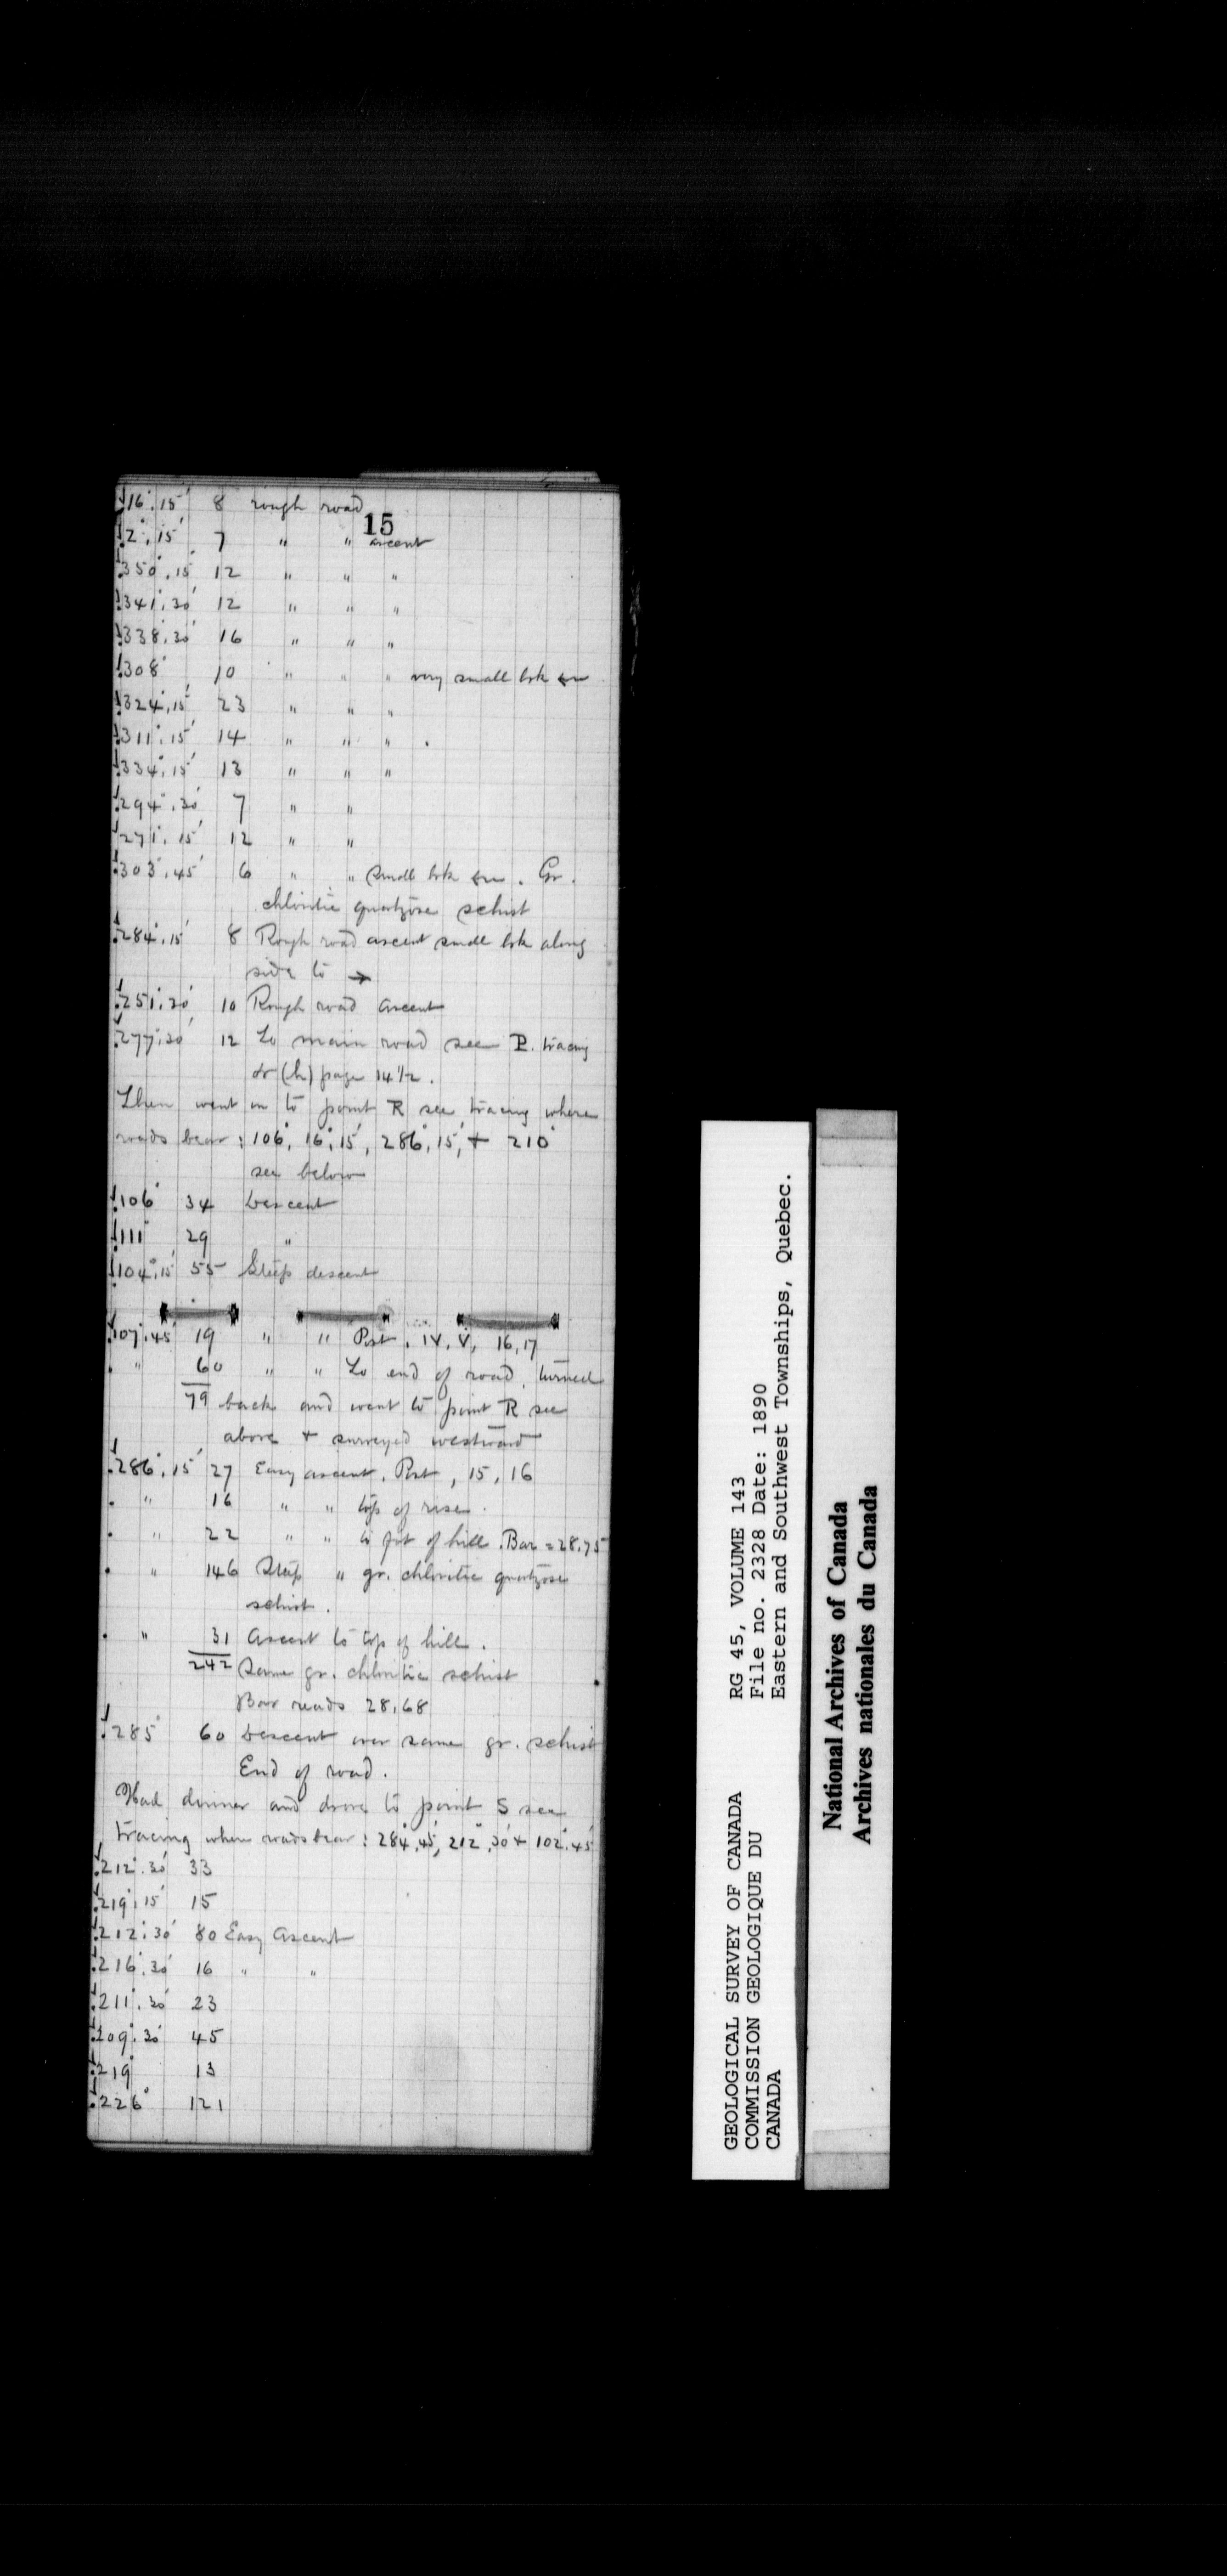 16°.15' 8 rough road
15
2°.15' 7 " " ascent
350°.15' 12 " " "
341°.30' 12 " " "
338°.30' 16 " " "
308° 10 " " " very small brk ←
324°.15' 23 " " "
311°.15' 14 " " "
334°.15' 13 " " "
294°.30' 7 " "
271°.15' 12 " "
303°.45' 6 " " small brk ← . Gr.
chloritic quartzose schist
284°.15' 8 Rough road ascent small brk along
side to →
251°.30' 10 Rough road ascent
277°.30' 12 To main road see P. tracing
or (h) page 14 1/2.
Then went on to point R see tracing where
roads bear: 106°, 16°.15', 286°.15', + 210°
see below
106° 34 Descent
111° 29 "
104°.15' 55 Steep descent
107°.45' 19 " " Post, IV, V, 16, 17
" 60 " " To end of road, turned
79 back and went to point R see
above + surveyed westward
286°.15' 27 Easy ascent. Post, 15, 16
" 16 " " top of rise.
" 22 " " to foot of hill. Bar = 28.75
" 146 Steep " gr. chloritic quartzose
schist.
" 31 Ascent to top of hill.
242 Same gr. chloritic schist
Bar reads 28.68
285° 60 Descent over same gr. schist
End of road.
Had dinner and drove to point S see
tracing where roads bear: 284°.45', 212°.30' + 102°.45'
212°.30' 33
219°.15' 15
212°.30' 80 Easy Ascent
216°.30' 16 " "
211°.30' 23
209°.30' 45
219° 13
226° 121
GEOLOGICAL SURVEY OF CANADA
COMMISSION GEOLOGIQUE DU
CANADA
RG 45, VOLUME 143
File no. 2328 Date: 1890
Eastern and Southwest Townships, Quebec.
National Archives of Canada
Archives nationales du Canada